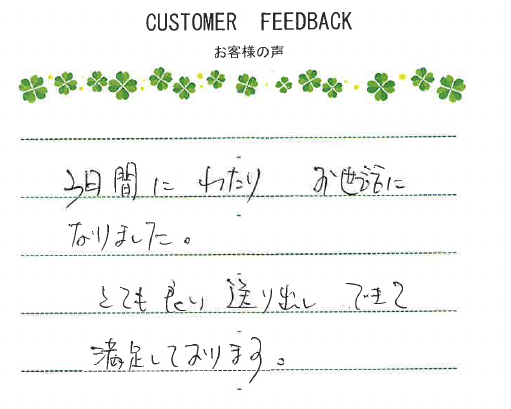 CUSTOMER FEEDBACK
お客様の声
3日間に わたり お世話に
なりました。
とても良い 送り出し できて
満足しております。